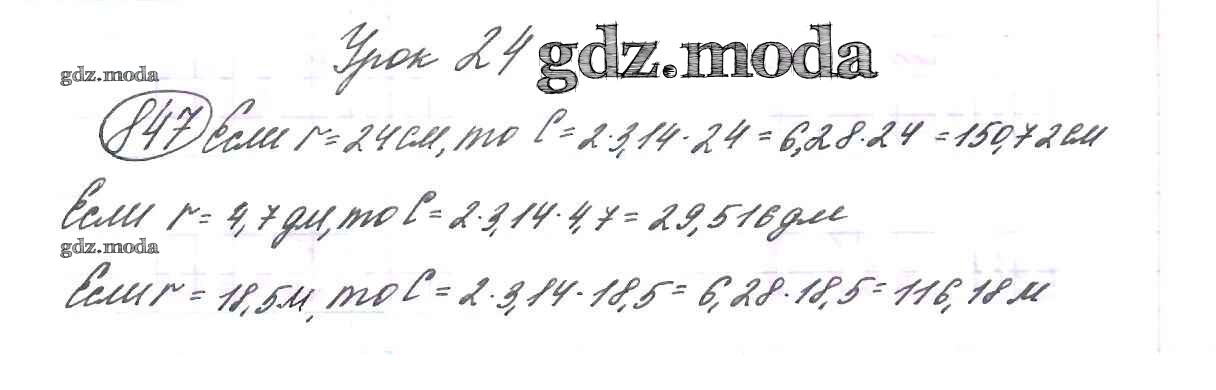 Урок 24 gdz.moda
gdz.moda
847 Если r = 24 см, то C = 2·3,14·24 = 6,28·24 = 150,72 см
Если r = 4,7 дм, то C = 2·3,14·4,7 = 29,516 дм
gdz.moda
Если r = 18,5 м, то C = 2·3,14·18,5 = 6,28·18,5 = 116,18 м